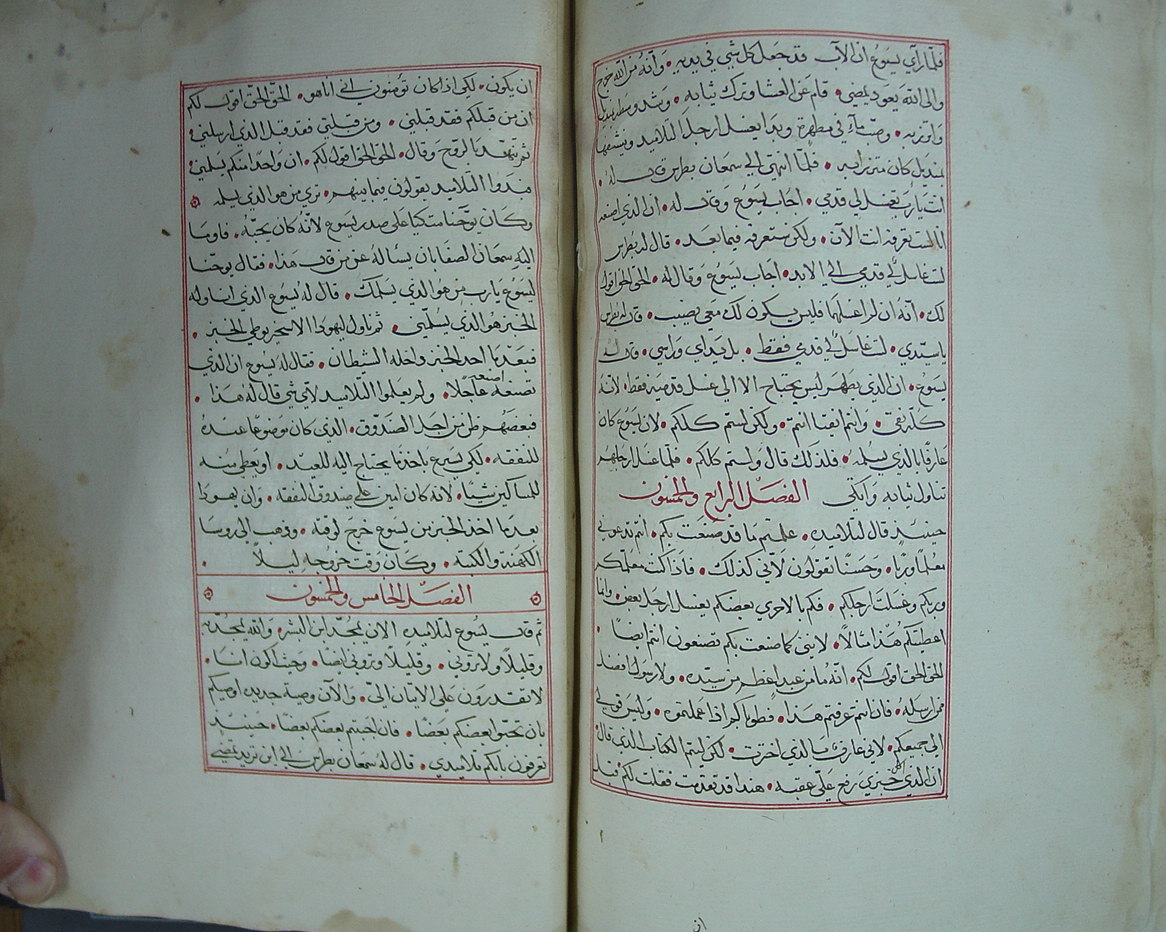 فلما رأي يسوع ان الآب قد جعل كل شي في يديه • وانه من الله خرج
والى الله يعود يمضي • قام عن العشا وترك ثيابه • وشد وسطه بمنديل
واتزر به • وصب ماء في مطهرة وبدا يغسل ارجل التلاميذ وينشفها
بمنديل كان متزرا به • فلما انتهى الى سمعان بطرس قال له •
انت يارب تغسل لي قدمي • اجاب يسوع وقال له • ان الذي اصنعه
انا لست تعرفه انت الآن • ولكن ستعرفه فيما بعد • قال له بطرس
لست غاسل لي قدمي الى الابد • اجاب يسوع وقال له • الحق الحق اقول
لك • انه ان لم اغسلهما فليس يكون لك معي نصيب • قال له بطرس
ياسيدي • لست غاسل لي قدمي فقط • بل يداي وراسي • قال له
يسوع • ان الذي يطهر ليس يحتاج الا الى غسل قدميه فقط • لانه
كله نقي • وانتم انقيا انتم • ولكن لستم كلكم • لان يسوع كان
عارفا بالذي يسلمه • فلذلك قال ولستم كلكم • فلما غسل ارجلهم
تناول ثيابه واتكى الفصل الرابع والخمسون
حينيذ قال لتلاميذه • علمتم ما قد صنعت بكم • انتم تدعوني
معلما وربا • وحسنا تقولون لاني كذلك • فاذا كنت معلمكم
وربكم وغسلت ارجلكم • فكم بالاحري بعضكم يغسل ارجل بعض • وانما
اعطيتكم هذا مثالا • لانني كما صنعت بكم تصنعون انتم ايضا •
الحق الحق اقول لكم • انه ما من عبد اعظم من سيده • ولا رسول افضل
ممن ارسله • فان انتم عرفتم هذا • فطوباكم اذا عملتموه • وليس قولي
الى جميعكم • لاني عارف بالذي اخترت • لكن ليتم الكتاب الذي قال
ان الذي اكل خبزي رفع علي عقبه • هذا قد تقدمت فقلت لكم قبل
ان
ان يكون • لكي اذا كان تؤمنون اني انا هو • الحق الحق اقول لكم
ان من قبلكم فقد قبلني • ومن قبلني فقد قبل الذي ارسلني •
ثم تنهد بالروح وقال • الحق الحق اقول لكم • ان واحدا منكم يسلمني •
فبدوا التلاميذ يقولون فيما بينهم • تري من هو الذي يسلمه
وكان يوحنا متكيا على صدر يسوع لانه كان يحبه • فاوما
اليه سمعان الصفا بان يسئاله عن من قال هذا • فقال يوحنا
ليسوع يارب من هو الذي يسلمك • قال له يسوع الذي اناوله
الخبز هو الذي يسلمني • ثم ناول ليهودا الاسخريوطي الخبز •
فبعدما اخذ الخبز داخله الشيطان • فقال له يسوع ان الذي
تصنعه اصنعه عاجلا • ولم يعلموا التلاميذ لاي شي قال له هذا •
فبعضهم ظن من اجل الصندوق • الذي كان موضوعا عنده
للنفقة • لكي يسوع ياخذ ما يحتاج اليه للعيد • او يعطي منه
للمساكين شيئا • لانه كان امين على صندوق النفقه • وان يهودا
بعدما اخذ الخبز من يسوع خرج لوقته • وذهب الى روسا
الكهنة والكتبه • وكان وقت خروجه ليلا •
الفصل الخامس والخمسون
ثم قال يسوع لتلاميذه الآن يمجد ابن البشر • والله يمجد به
وقليلا ولا تروني • وقليلا وتروني ايضا • وحيث اكون انا •
لا تقدرون على الاتيان الي • والآن وصية جديده اوصيكم
بان تحبوا بعضكم بعضا • فان احببتم بعضكم بعضا • حينيذ
تعرفون بانكم تلاميذي • قال له سمعان بطرس الى اين تريد تمضي